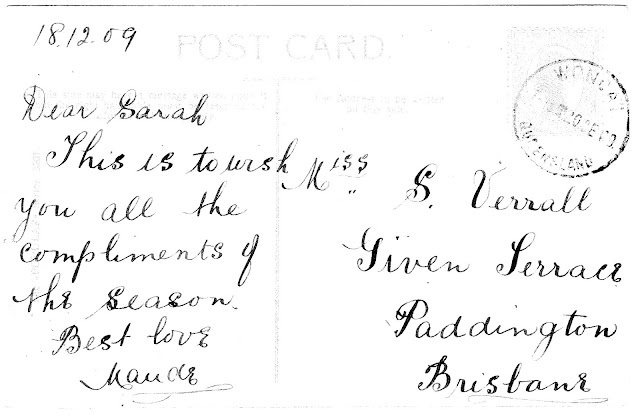 18.12.09
POST CARD.
Dear Sarah
This is to wish
you all the
compliments of
the season.
Best love
Maude
Miss S. Verrall
Given Terrace
Paddington
Brisbane
QUEENSLAND